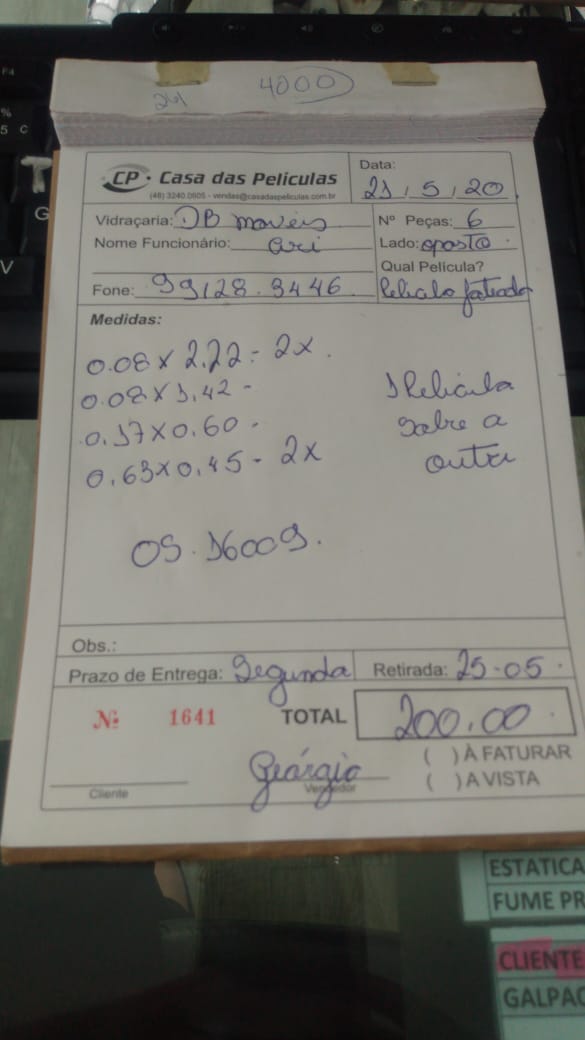 4000
CP · Casa das Peliculas
(48) 3240.0605 - vendas@casadaspeliculas.com.br
Data:
21, 5, 20
Vidraçaria: DB moveis
Nº Peças: 6
Nome Funcionário: Ari
Lado: oposto
Qual Película?
Fone: 99128.3446
Medidas:
0.08 x 2.22 = 2x
0.08 x 1.42 -
0.17 x 0.60 -
0.63 x 0.45 - 2x
Pelicula
sobre a
outra
OS. 16009.
Obs.:
Prazo de Entrega: Segunda
Retirada: 25-05
Nº 1641
TOTAL
200,00
( ) À FATURAR
( ) A VISTA
Geórgio
Cliente
Vendedor
ESTATICA
FUME PR
CLIENTE
GALPAC
F4
%
5
C
G
V